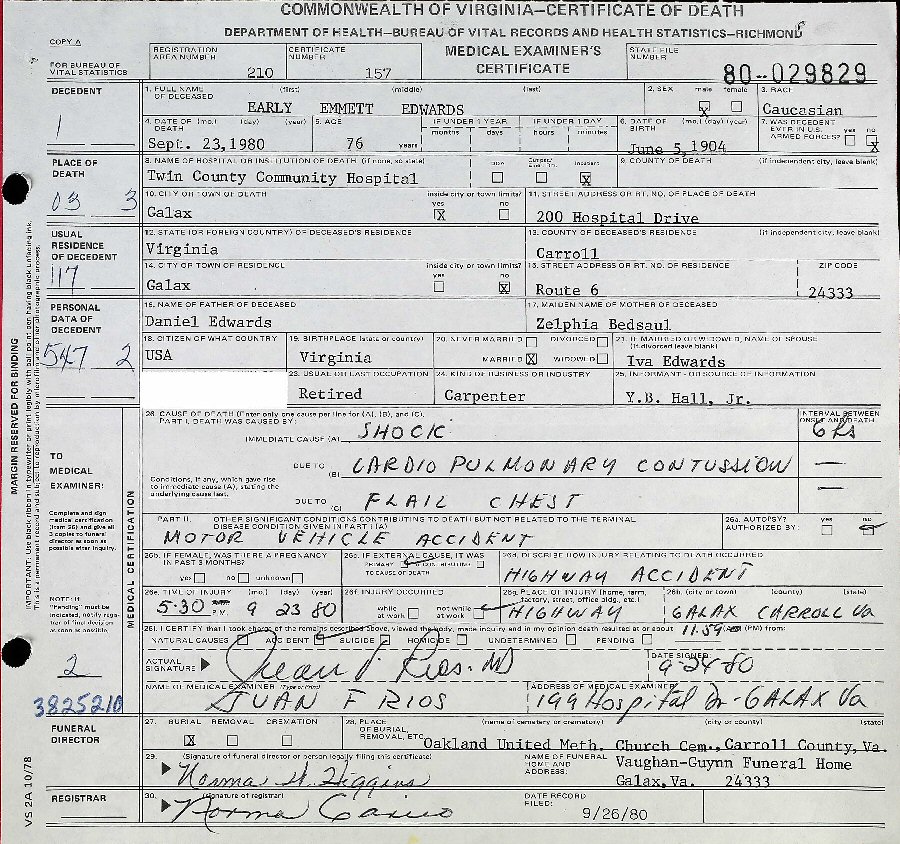 COMMONWEALTH OF VIRGINIA—CERTIFICATE OF DEATH
DEPARTMENT OF HEALTH—BUREAU OF VITAL RECORDS AND HEALTH STATISTICS—RICHMOND
COPY A
FOR BUREAU OF VITAL STATISTICS
REGISTRATION AREA NUMBER 210
CERTIFICATE NUMBER 157
MEDICAL EXAMINER'S CERTIFICATE
STATE FILE NUMBER 80-029829
DECEDENT
1
1. FULL NAME OF DECEASED (first) (middle) (last)
EARLY EMMETT EDWARDS
2. SEX male X female
3. RACE Caucasian
4. DATE OF DEATH (mo.) (day) (year) Sept. 23,1980
5. AGE 76 years
IF UNDER 1 YEAR months days
IF UNDER 1 DAY hours minutes
6. DATE OF BIRTH (mo.) (day) (year) June 5,1904
7. WAS DECEDENT EVER IN U.S. ARMED FORCES? yes no X
PLACE OF DEATH
03 3
8. NAME OF HOSPITAL OR INSTITUTION OF DEATH (if none, so state)
Twin County Community Hospital
DOA Inpatient X
9. COUNTY OF DEATH (if independent city, leave blank)
10. CITY OR TOWN OF DEATH inside city or town limits? yes X no
Galax
11. STREET ADDRESS OR RT. NO. OF PLACE OF DEATH
200 Hospital Drive
USUAL RESIDENCE OF DECEDENT
117
12. STATE (OR FOREIGN COUNTRY) OF DECEASED'S RESIDENCE
Virginia
13. COUNTY OF DECEASED'S RESIDENCE (if independent city, leave blank)
Carroll
14. CITY OF TOWN OF RESIDENCE inside city or town limits? yes no X
Galax
15. STREET ADDRESS OR RT. NO. OF RESIDENCE ZIP CODE
Route 6 24333
PERSONAL DATA OF DECEDENT
547 2
16. NAME OF FATHER OF DECEASED
Daniel Edwards
17. MAIDEN NAME OF MOTHER OF DECEASED
Zelphia Bedsaul
18. CITIZEN OF WHAT COUNTRY
USA
19. BIRTHPLACE (state or country)
Virginia
20. NEVER MARRIED DIVORCED
MARRIED X WIDOWED
21. IF MARRIED OR WIDOWED, NAME OF SPOUSE (if divorced leave blank)
Iva Edwards
23. USUAL OR LAST OCCUPATION
Retired
24. KIND OF BUSINESS OR INDUSTRY
Carpenter
25. INFORMANT - OR SOURCE OF INFORMATION
Y.B. Hall, Jr.
TO MEDICAL EXAMINER:
Complete and sign medical certification (item 26) and give all 3 copies to funeral director as soon as possible after inquiry.
NOTE: If "Pending" must be indicated, notify registrar of final decision as soon as possible.
MEDICAL CERTIFICATION
26. CAUSE OF DEATH (Enter only one cause per line for (A), (B), and (C).
PART I. DEATH WAS CAUSED BY:
INTERVAL BETWEEN ONSET AND DEATH
IMMEDIATE CAUSE (A) SHOCK 6 hs
DUE TO (B) CARDIO PULMONARY CONTUSSION —
Conditions, if any, which gave rise to immediate cause (A), stating the underlying cause last.
DUE TO (C) FLAIL CHEST —
PART II. OTHER SIGNIFICANT CONDITIONS CONTRIBUTING TO DEATH BUT NOT RELATED TO THE TERMINAL DISEASE CONDITION GIVEN IN PART I (A)
MOTOR VEHICLE ACCIDENT
26a. AUTOPSY? AUTHORIZED BY: yes no
26b. IF FEMALE, WAS THERE A PREGNANCY IN PAST 3 MONTHS?
yes no unknown
26c. IF EXTERNAL CAUSE, IT WAS
PRIMARY CONTRIBUTING
TO CAUSE OF DEATH
26d. DESCRIBE HOW INJURY RELATING TO DEATH OCCURRED
HIGHWAY ACCIDENT
26e. TIME OF INJURY (mo.) (day) (year)
5:30 P.M. 9 23 80
26f. INJURY OCCURRED
while at work not while at work
26g. PLACE OF INJURY (home, farm, factory, street, office bldg., etc.)
HIGHWAY
26h. (city or town) (county) (state)
GALAX CARROLL Va
26i. I CERTIFY that I took charge of the remains described above, viewed the body, made inquiry and in my opinion death resulted at or about 11:59 (AM) (PM) from:
NATURAL CAUSES ACCIDENT SUICIDE HOMICIDE UNDETERMINED PENDING
2
ACTUAL SIGNATURE Juan F. Rios. MD
DATE SIGNED: 9-24-80
3825210
NAME OF MEDICAL EXAMINER (Type or Print)
JUAN F RIOS
ADDRESS OF MEDICAL EXAMINER
199 Hospital Dr - GALAX Va
FUNERAL DIRECTOR
27. BURIAL X REMOVAL CREMATION
28. PLACE OF BURIAL, REMOVAL, ETC. (name of cemetery or crematory) (city or county) (state)
Oakland United Meth. Church Cem., Carroll County, Va.
29. (Signature of funeral director or person legally filing this certificate)
Norma H. Higgins
NAME OF FUNERAL HOME AND ADDRESS:
Vaughan-Guynn Funeral Home
Galax,Va. 24333
REGISTRAR
30. (signature of registrar)
Norma
DATE RECORD FILED: 9/26/80
VS 2A 10/78
MARGIN RESERVED FOR BINDING